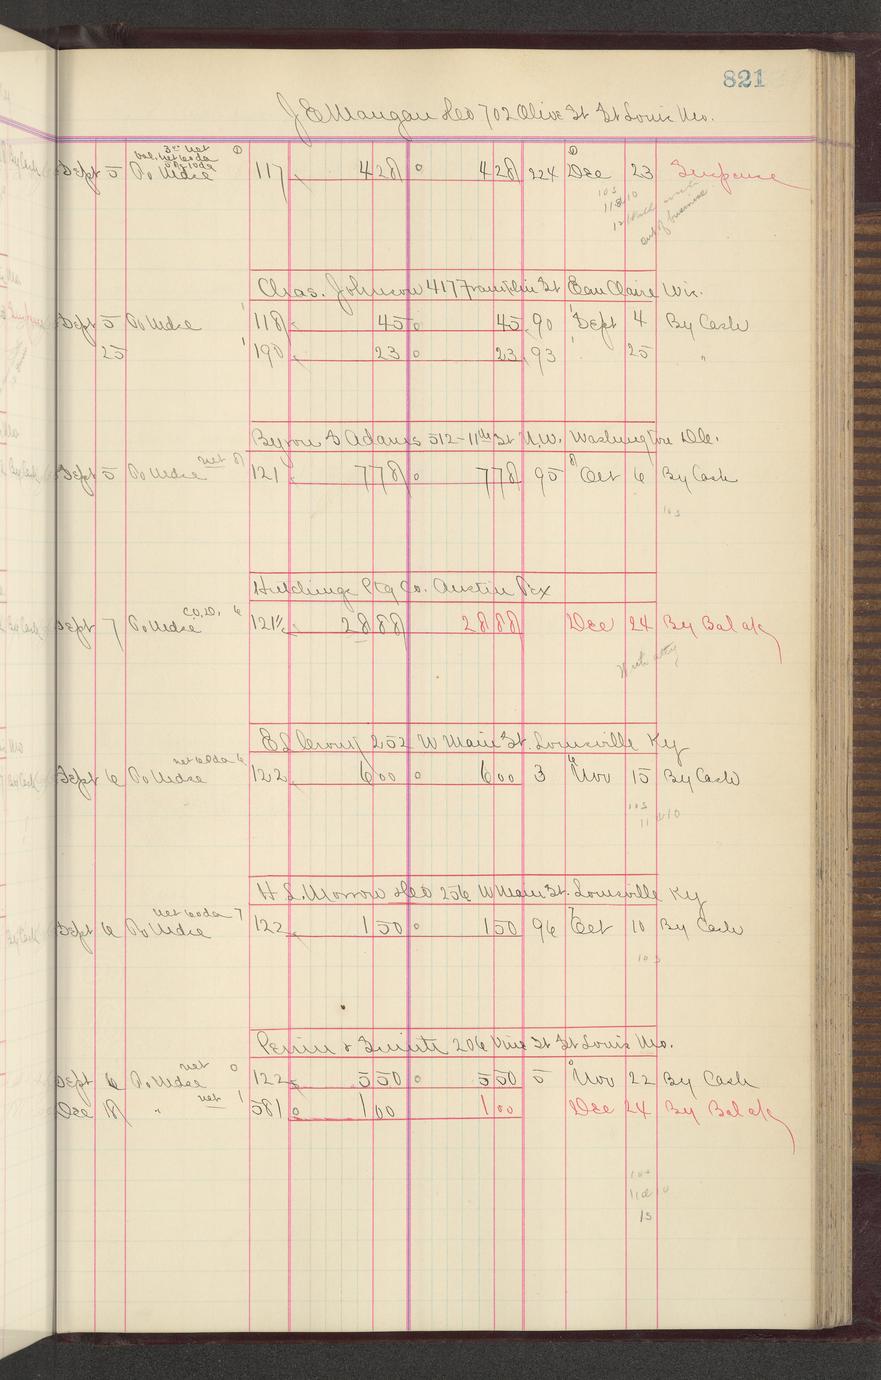 821
J E Mangan 702 Olive St St Louis Mo.
3% net
bal. net 60da
Sept 5 To Mdse 117 428 428 224 Dec 23 Suspense
10 5
11 10
out of business
Chas. Johnson 417 Franklin St Eau Claire Wis.
Sept 5 To Mdse 1 118 45 45 90 Sept 4 By Cash
25 1 190 23 23 93 25 "
Byron S Adams 512-11th St N.W. Washington DC.
Sept 5 To Mdse net 8 121 778 778 95 8 Oct 6 By Cash
10 5
Hutchings Ptg Co. Austin Tex
Sept 7 To Mdse C.O.D. 6 121½ 2888 2888 Dec 24 By Bal a/c
With atty
E L 252 W Main St. Louisville Ky
Sept 6 To Mdse net 60da 6 122 600 600 3 6 Nov 15 By Cash
11 5
11 10
H L. Morrow 256 W Main St. Louisville Ky
Sept 6 To Mdse net 60da 7 122 150 150 96 7 Oct 10 By Cash
10 5
Perrin & Smith 206 Vine St St Louis Mo.
Sept 6 To Mdse net 0 122 550 550 5 0 Nov 22 By Cash
Dec 18 " net 1 581 100 100 Dec 24 By Bal a/c
11 10
15